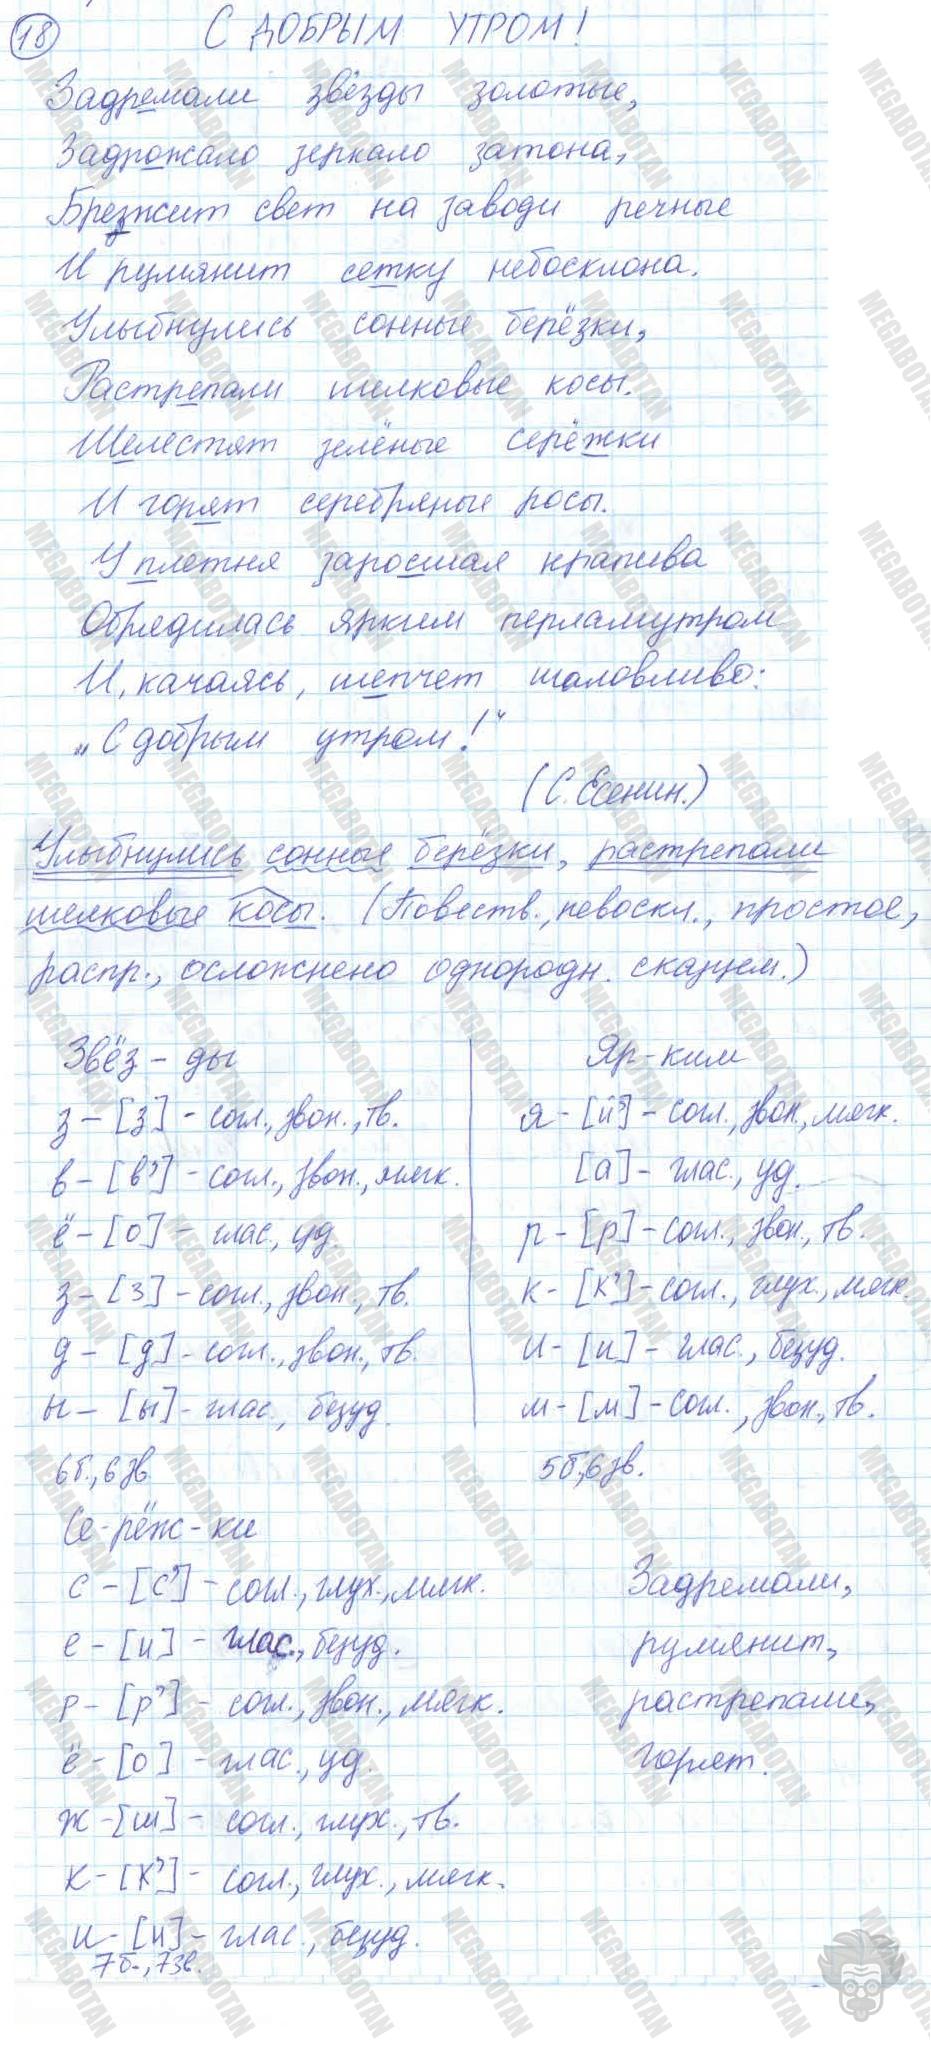 18 С ДОБРЫМ УТРОМ!
Задремали звёзды золотые,
Задрожало зеркало затона,
Брезжит свет на заводи речные
И румянит сетку небосклона.
Улыбнулись сонные берёзки,
Растрепали шелковые косы.
Шелестят зелёные серёжки
И горят серебряные росы.
У плетня заросшая крапива
Обрядилась ярким перламутром
И, качаясь, шепчет шаловливо:
„С добрым утром!“
(С. Есенин.)
Улыбнулись сонные берёзки, растрепали
шелковые косы. (Повеств., невоскл., простое,
распр., осложнено однородн. сказуем.)
Звёз - ды
з - [з] - согл., звон., тв.
в - [в'] - согл., звон., мягк.
ё - [о] - глас., уд.
з - [з] - согл., звон., тв.
д - [д] - согл., звон., тв.
ы - [ы] - глас., безуд.
6б., 6зв.
Яр - ким
я - [й'] - согл., звон., мягк.
[а] - глас., уд.
р - [р] - согл., звон., тв.
к - [к'] - согл., глух., мягк.
и - [и] - глас., безуд.
м - [м] - согл., звон., тв.
5б., 6зв.
Се - рёж - ки
с - [с'] - согл., глух., мягк.
е - [и] - глас., безуд.
р - [р'] - согл., звон., мягк.
ё - [о] - глас., уд.
ж - [ш] - согл., глух., тв.
к - [к'] - согл., глух., мягк.
и - [и] - глас., безуд.
7б., 7зв.
Задремали,
румянит,
растрепали,
горят.
MEGABOTAN